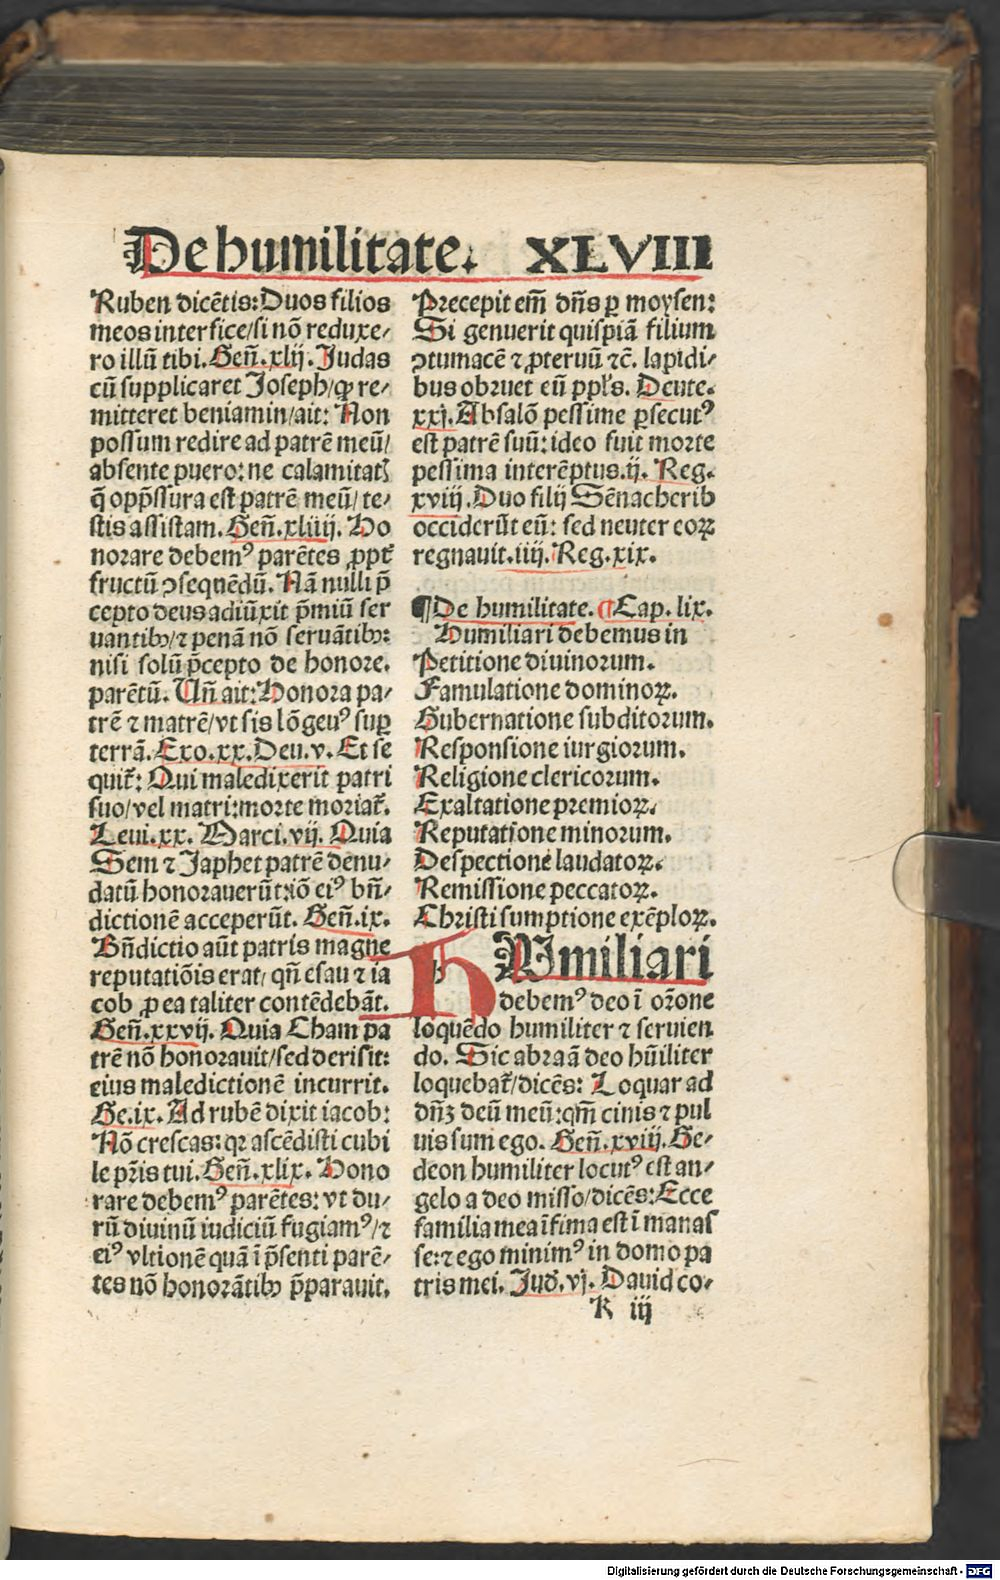 De humilitate. XLVIII
Ruben dicẽtis: Duos filios
meos interfice/si nõ reduxe-
ro illũ tibi. Geñ.xlij. Judas
cũ supplicaret Joseph/ꝙ re-
mitteret beniamin/ait: Non
possum redire ad patrẽ meũ/
absente puero: ne calamitatꝭ
q̃ opp̃ssura est patrẽ meũ/te-
stis assistam. Geñ.xliiij. Ho
norare debemꝰ parẽtes ꝓpt̃
fructũ ↄsequẽdũ. Nã nulli p̃
cepto deus adiũxit p̃miũ ser
uantibꝰ/⁊ penã nõ seruãtibꝰ:
nisi solũ p̃cepto de honore.
parẽtũ. Uñ ait: Honora pa-
trẽ ⁊ matrẽ/vt sis lõgeuꝰ suꝑ
terrã. Exo.xx. Deu.v. Et se
quit̃: Qui maledixerit patri
suo/vel matri: morte moriat̃.
Leui.xx. Marci.vij. Quia
Sem ⁊ Japhet patrẽ denu-
datũ honorauerũt: iõ eiꝰ bñ-
dictionẽ acceperũt. Geñ.ix.
Bñdictio aũt patris magne
reputatiõis erat/ qñ esau ⁊ ia
cob ꝓ ea taliter contẽdebãt.
Geñ.xxvij. Quia Cham pa
trẽ nõ honorauit/sed derisit:
eius maledictionẽ incurrit.
Ge.ix. Ad rubẽ dixit iacob:
Nõ crescas: qꝛ ascẽdisti cubi
le pr̃is tui. Geñ.xlix. Hono
rare debemꝰ parẽtes: vt du-
rũ diuinũ iudiciũ fugiamꝰ/⁊
eiꝰ vltionẽ quã ĩ p̃senti parẽ-
tes nõ honorãtibꝰ p̃parauit.
Precepit em̃ dñs ꝑ moysen:
Si genuerit quispiã filium
ↄtumacẽ ⁊ ꝓteruũ ⁊c̃. lapidi-
bus obruet eũ ppl's. Deute.
xxj. Absalõ pessime ꝑsecutꝰ
est patrẽ suũ: ideo fuit morte
pessima interẽptus.ij. Reg.
xviij. Duo filij Sẽnacherib
occiderũt eũ: sed neuter eoꝝ
regnauit.iiij. Reg.xix.
¶De humilitate. ¶Cap. lix.
Humiliari debemus in
Petitione diuinorum.
Famulatione dominoꝝ.
Gubernatione subditorum.
Responsione iurgiorum.
Religione clericorum.
Exaltatione premioꝝ.
Reputatione minorum.
Despectione laudatoꝝ.
Remissione peccatoꝝ.
Christi sumptione exẽploꝝ.
HUmiliari
debemꝰ deo ĩ oꝛone
loquẽdo humiliter ⁊ seruien
do. Sic abraã deo hũiliter
loquebat̃/dicẽs: Loquar ad
dñꝫ deũ meũ: qm̃ cinis ⁊ pul
uis sum ego. Geñ.xviij. Ge-
deon humiliter locutꝰ est an-
gelo a deo misso/dicẽs: Ecce
familia mea ĩfima est ĩ manas
se: ⁊ ego minimꝰ in domo pa
tris mei. Jud̃.vj. Dauid co-
K iij
Digitalisierung gefördert durch die Deutsche Forschungsgemeinschaft - DFG